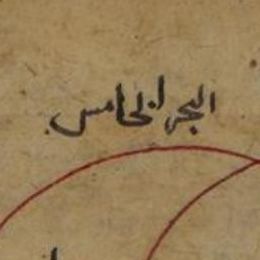 البحر الخامس